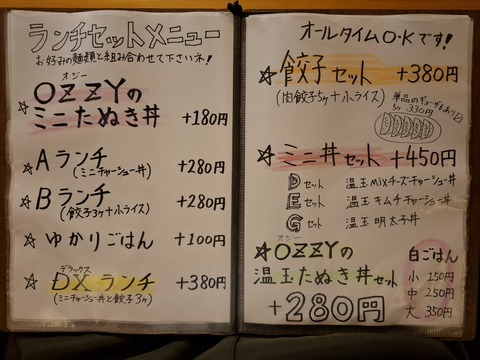 ランチセットメニュー
お好みの麺類と組み合わせて下さいネ!
オジー
☆OZZYの
ミニたぬき丼 +180円
☆Aランチ +280円
(ミニチャーシュー丼)
☆Bランチ +280円
(餃子3ヶ+小ライス)
☆ゆかりごはん +100円
デラックス
☆DXランチ +380円
(ミニチャーシュー丼と餃子3ヶ)
オールタイムO・Kです!
☆餃子セット +380円
(肉餃子5ヶ+小ライス)
単品のギョーザもあり
5ヶ 330円
☆ミニ丼セット +450円
Dセット 温玉Mixチーズチャーシュー丼
Eセット 温玉キムチチャーシュー丼
Gセット 温玉明太子丼
オジー
☆OZZYの
温玉たぬき丼セット
+280円
白ごはん
小 150円
中 250円
大 350円